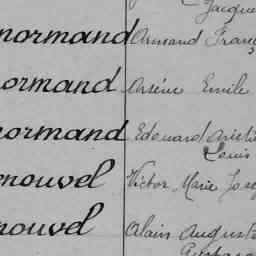 Jacque
normand Armand Franç
normand Arsène Emile
normand Edouard Aristi
Louis
enouvel Victor Marie Jose
nouvel Alain Auguste